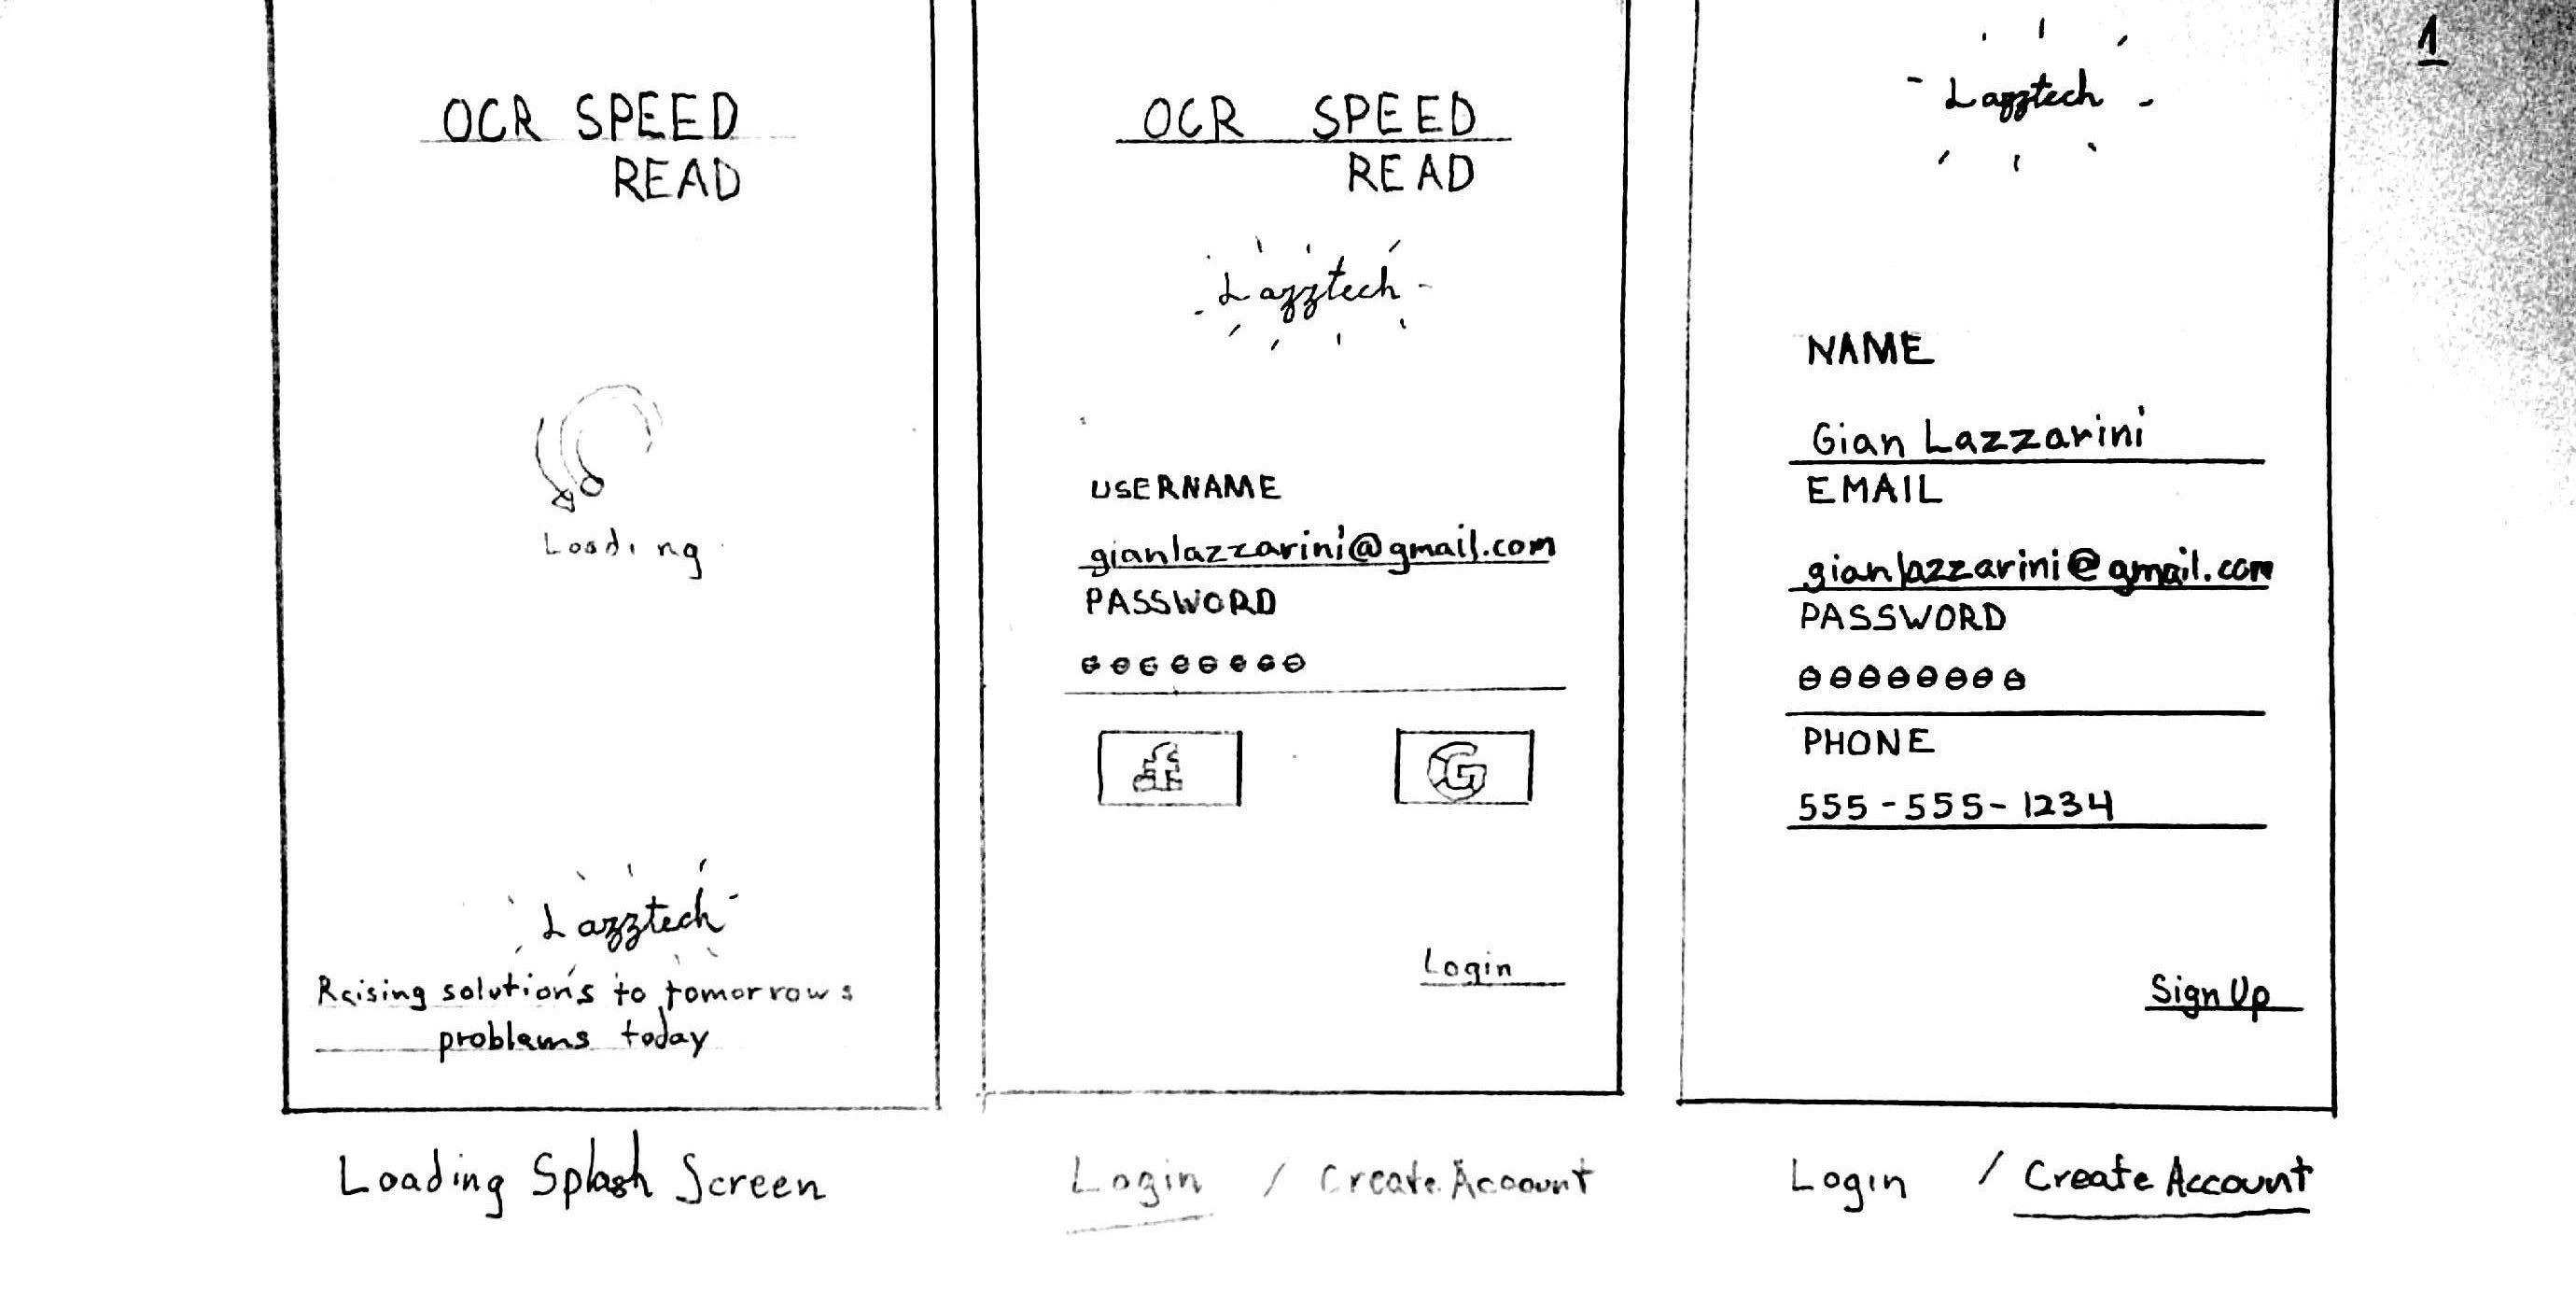 1
OCR SPEED
READ
Loading
Lazztech
Raising solutions to tomorrows
problems today
Loading Splash Screen
OCR SPEED
READ
Lazztech
USERNAME
gianlazzarini@gmail.com
PASSWORD
f
G
Login
Login / Create Account
Lazztech
NAME
Gian Lazzarini
EMAIL
gianlazzarini@gmail.com
PASSWORD
PHONE
555-555-1234
Sign Up
Login / Create Account